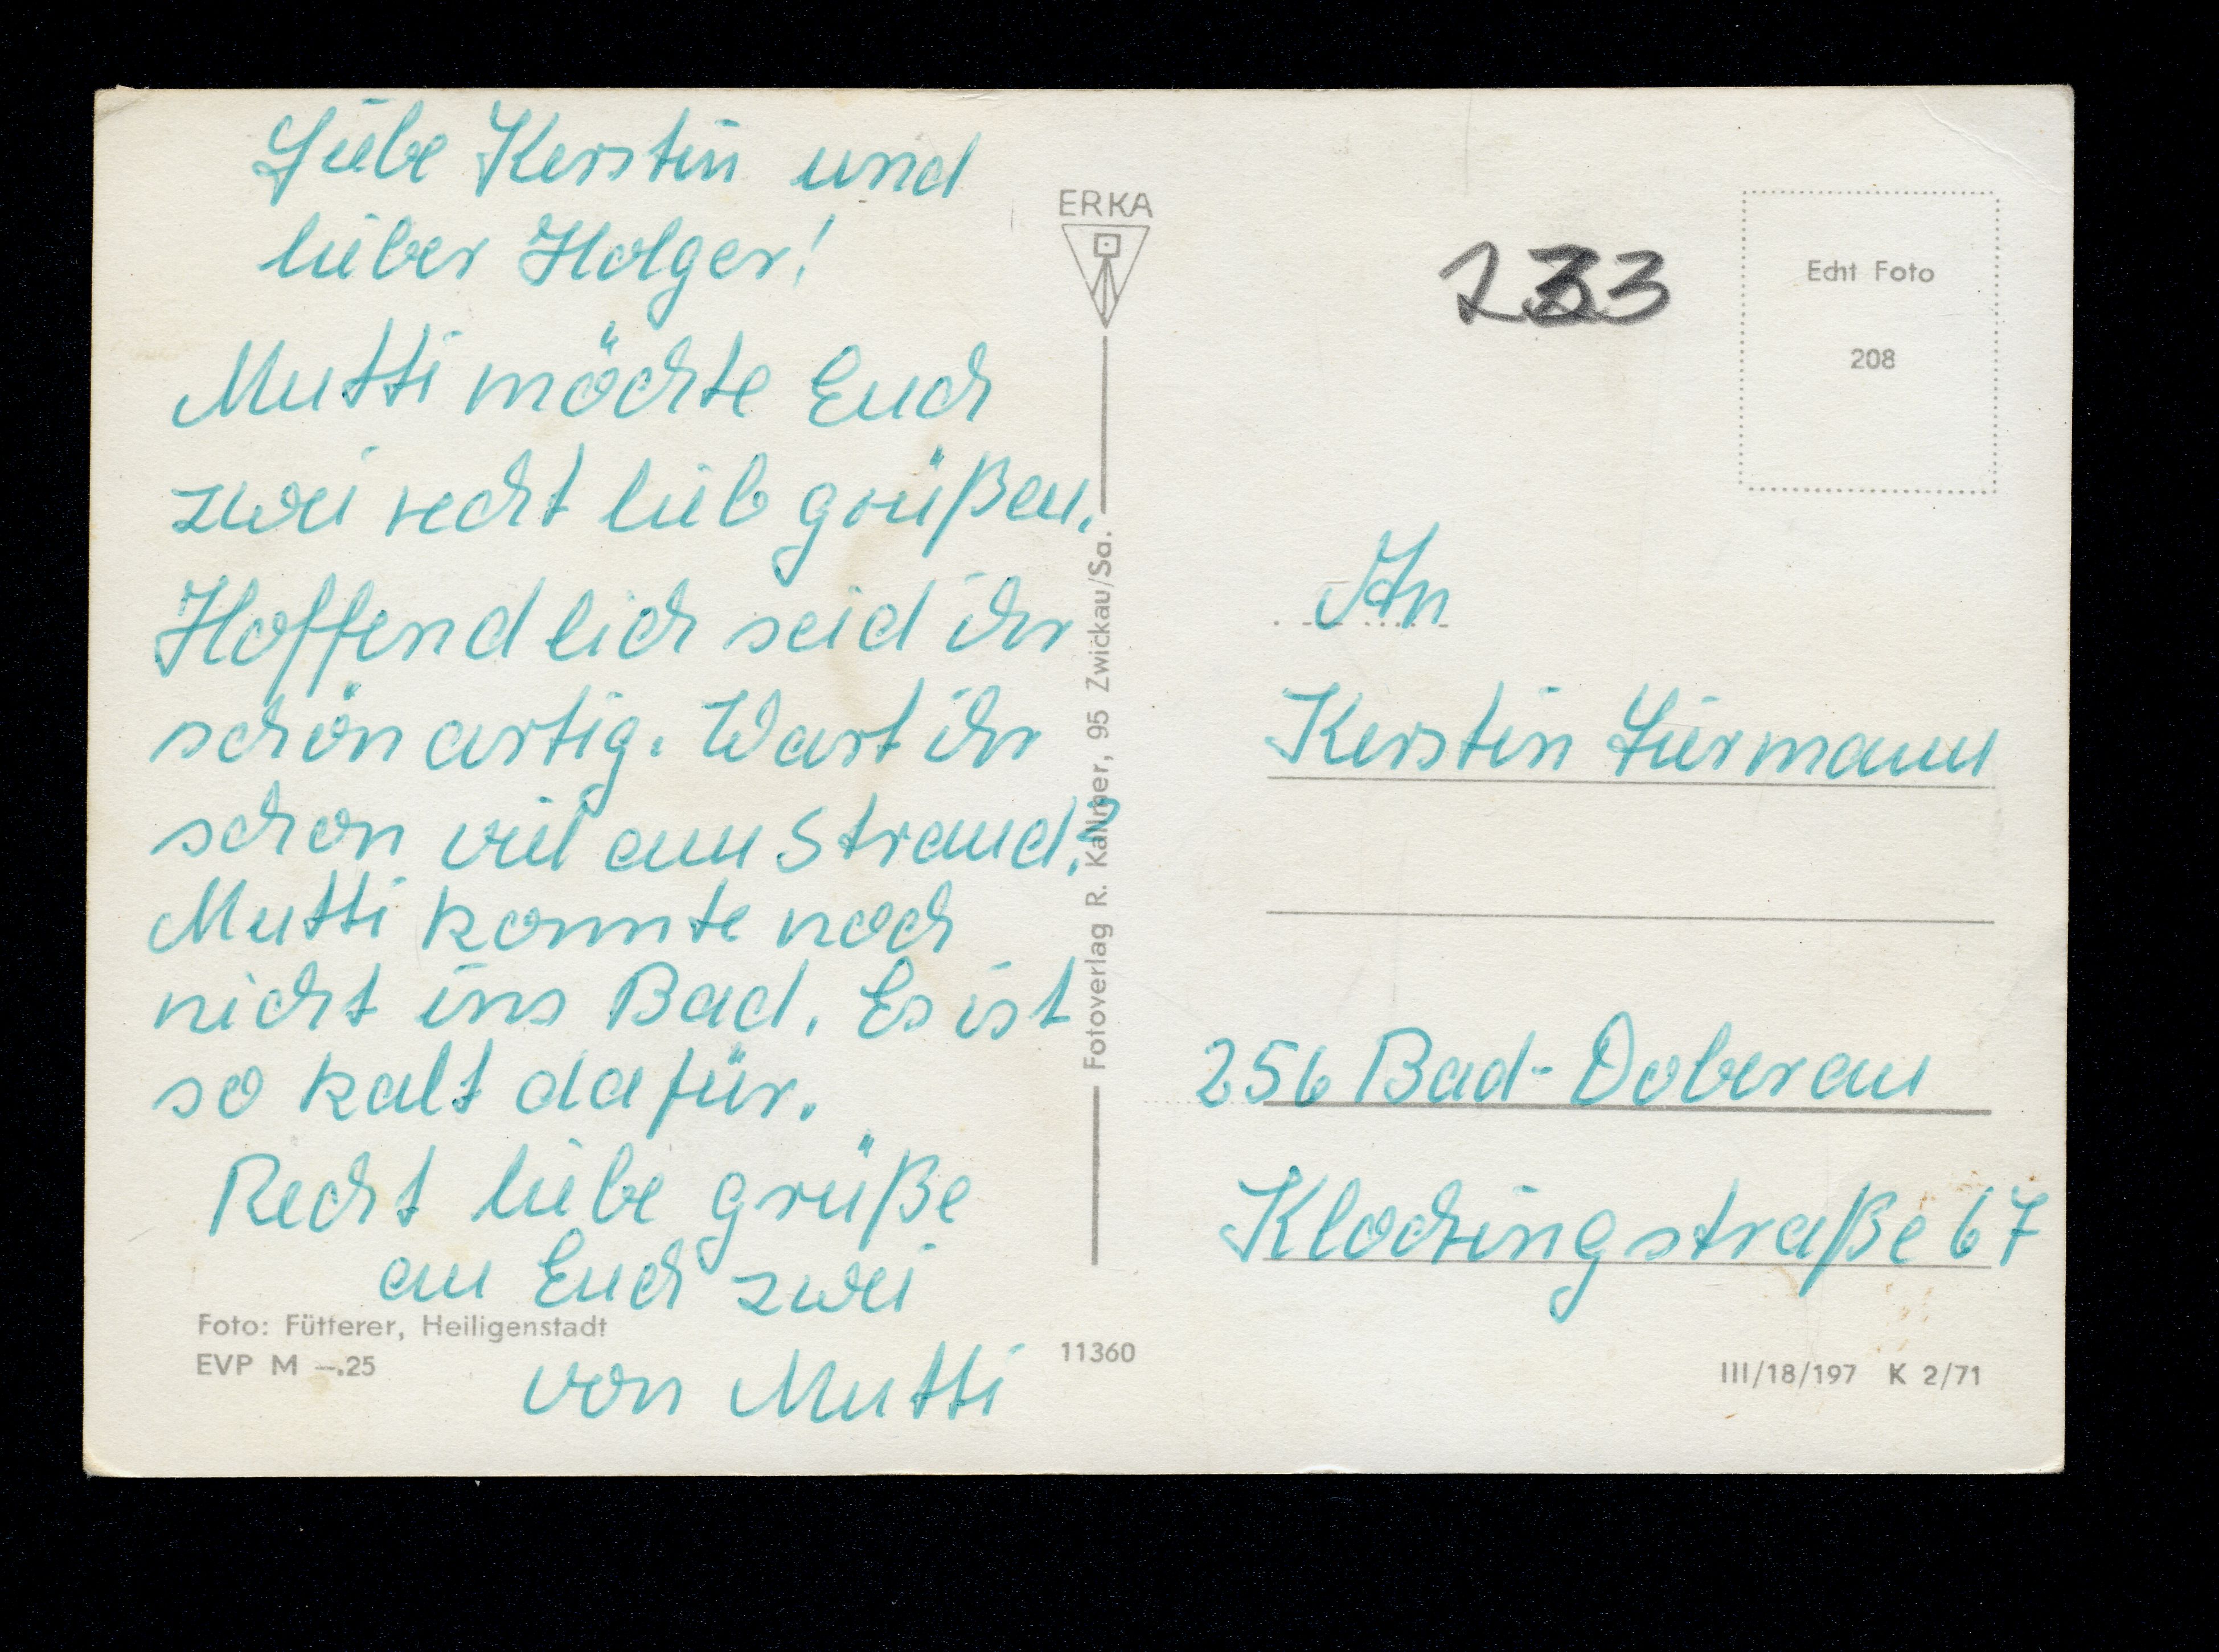 Liebe Kerstin und
lieber Holger!
Mutti möchte Euch
zwei recht lieb grüßen.
Hoffendlich seid ihr
schön artig. Wart ihr
schon viel am Strand?
Mutti konnte noch
nicht ins Bad. Es ist
so kalt dafür.
Recht liebe grüße
an Euch zwei
von Mutti
Foto: Fütterer, Heiligenstadt
EVP M —.25
ERKA
Fotoverlag R. Kallmer, 95 Zwickau/Sa.
11360
233
Echt Foto
208
An
Kerstin Liermann
256 Bad-Doberan
Klockingstraße 67
III/18/197 K 2/71